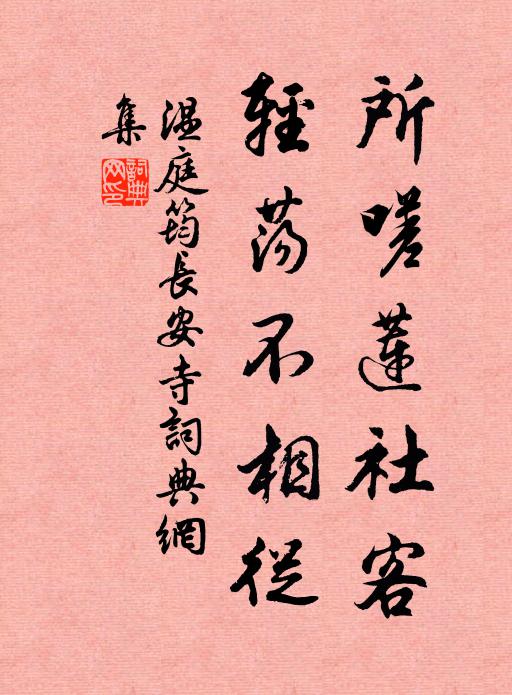 所嗟蓮社客
輕蕩不相從
溫庭筠長安寺詞典網
集
詞典網印